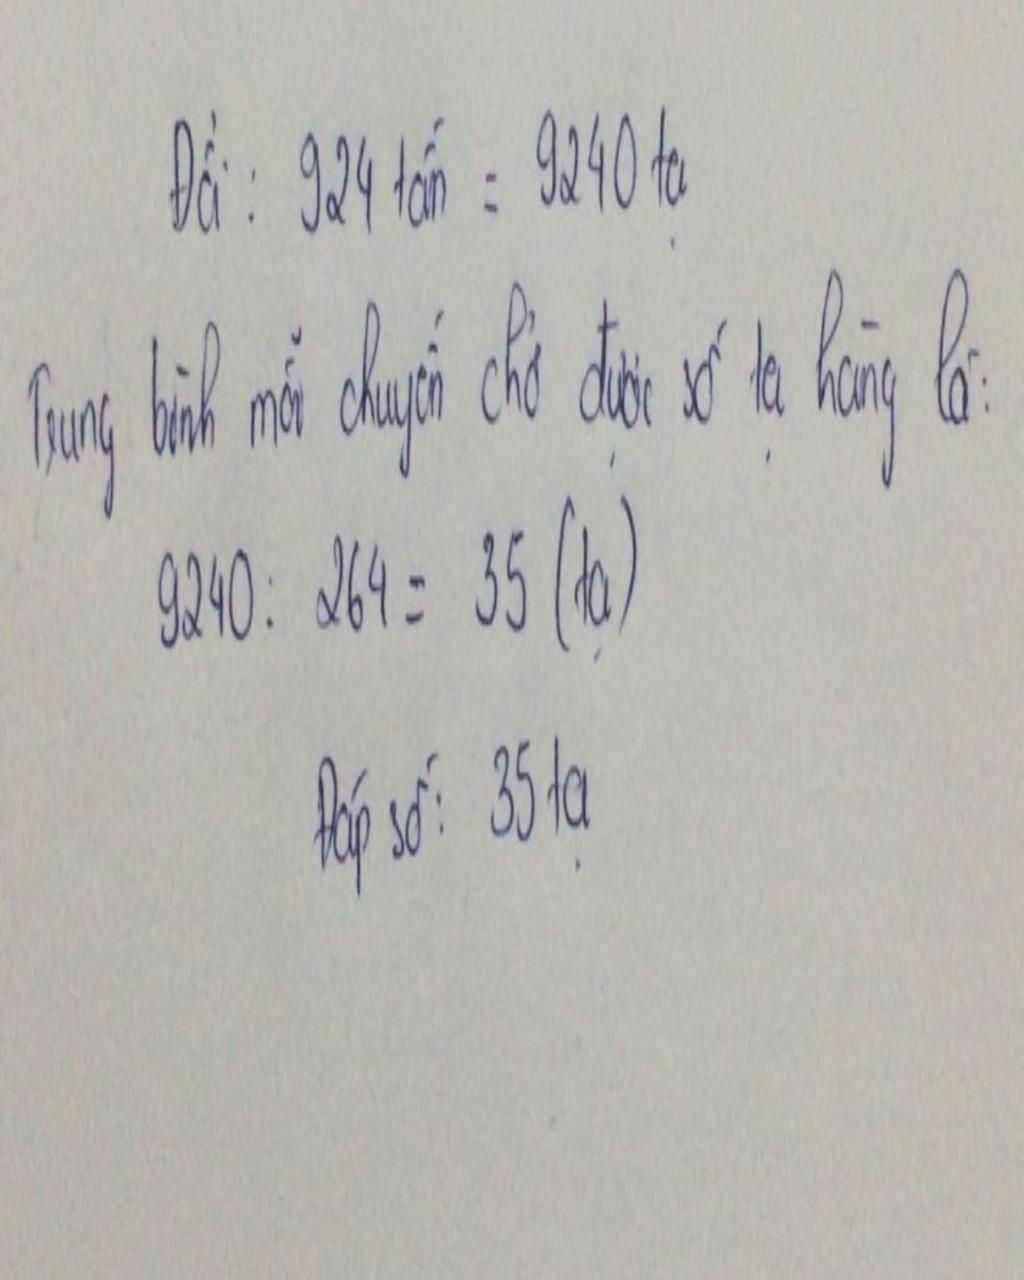 Đổi: 924 tấn = 9240 tạ
Trung bình mỗi chuyến chở được số tạ hàng là:
9240: 264 = 35 (tạ)
Đáp số: 35 tạ